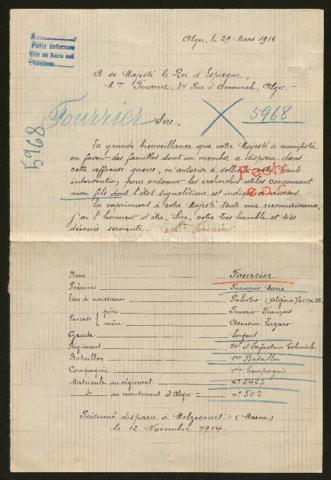 Alger, le 29 Mars 1916
A sa Majesté le Roi d'Espagne,
Mme Fourrier, Rue d'Amourah, Alger.
Fourrier
5968
5968
Sire,
La grande bienveillance que votre Majesté a manifesté
en faveur des familles dont un membre a disparu dans
cette affreuse guerre, m'autorise à solliciter Sa haute
intervention, pour ordonner les recherches utiles concernant
mon fils dont l'état signalétique est indiqué ci-dessous.
En exprimant à votre Majesté toute ma reconnaissance,
j'ai l'honneur d'être, Sire, votre très humble et très
dévouée servante.
Nom Fourrier
Prénoms François Marie
Lieu de naissance Palestro (Algérie)
Parents père Fourrier François
mère Lazaro
Grade Sergent
Régiment d'Infanterie Coloniale
Bataillon Bataillon
Compagnie Compagnie
Matricule au régiment n° 5467
d° au recrutement d'Alger n° 502
Présumé disparu à Malzecourt (Marne)
le 12 Novembre 1914.